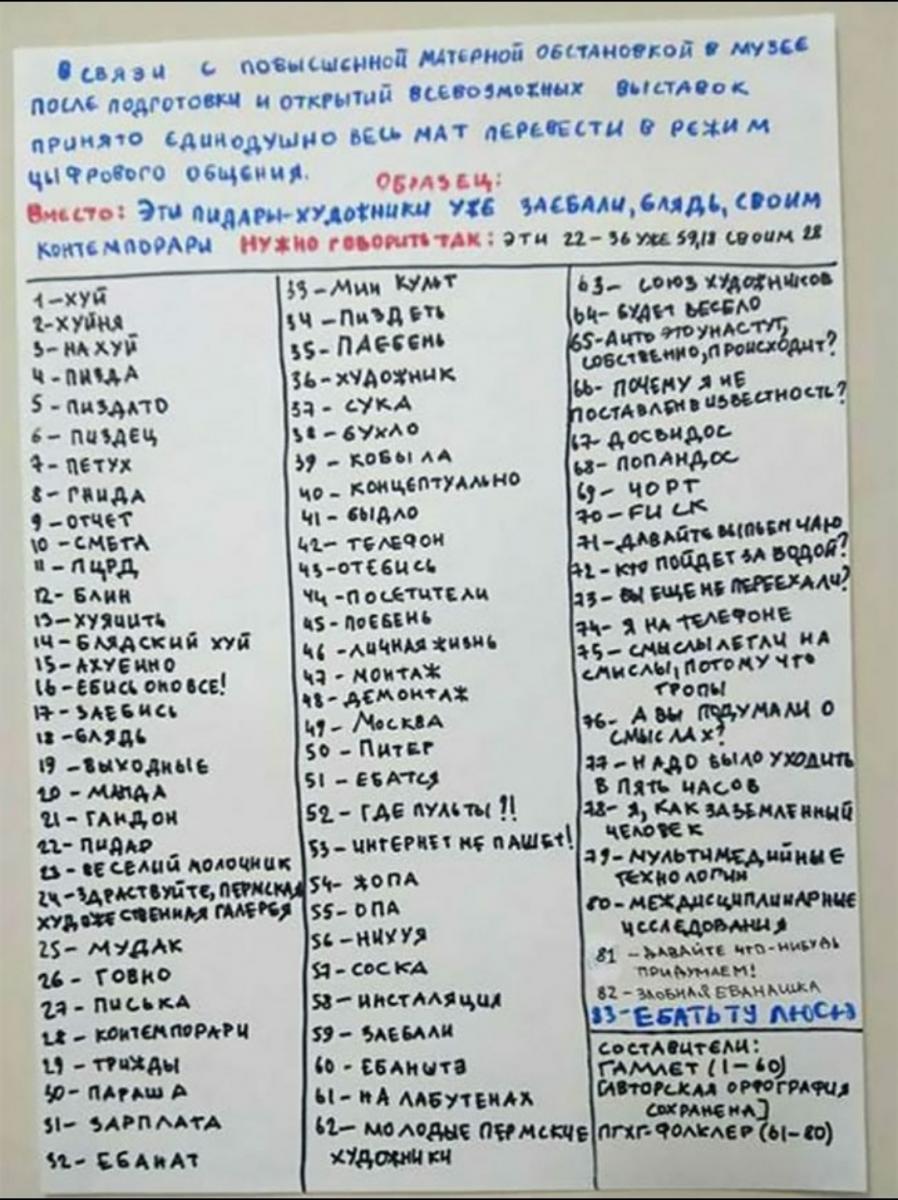 В СВЯЗИ С ПОВЫСШЕННОЙ МАТЕРНОЙ ОБСТАНОВКОЙ В МУЗЕЕ
ПОСЛЕ ПОДГОТОВКИ И ОТКРЫТИЙ ВСЕВОЗМОЖНЫХ ВЫСТАВОК
ПРИНЯТО ЕДИНОДУШНО ВЕСЬ МАТ ПЕРЕВЕСТИ В РЕЖИМ
ЦЫФРОВОГО ОБЩЕНИЯ. ОБРАЗЕЦ:
ВМЕСТО: ЭТИ ПИДАРЫ-ХУДОЖНИКИ УЖЕ ЗАЕБАЛИ, БЛЯДЬ, СВОИМ
КОНТЕМПОРАРИ НУЖНО ГОВОРИТЬ ТАК: ЭТИ 22-36 УЖЕ 59,18 СВОИМ 28
1-ХУЙ
2-ХУЙНЯ
3-НАХУЙ
4-ПИЗДА
5-ПИЗДАТО
6-ПИЗДЕЦ
7-ПЕТУХ
8-ГНИДА
9-ОТЧЕТ
10-СМЕТА
11-ПЦРД
12-БЛИН
13-ХУЯЧИТЬ
14-БЛЯДСКИЙ ХУЙ
15-АХУЕННО
16-ЕБИСЬ ОНО ВСЕ!
17-ЗАЕБИСЬ
18-БЛЯДЬ
19-ВЫХОДНЫЕ
20-МАНДА
21-ГАНДОН
22-ПИДАР
23-ВЕСЕЛИЙ МОЛОЧНИК
24-ЗДРАСТВУЙТЕ, ПЕРМСКАЯ
ХУДОЖЕСТВЕННАЯ ГАЛЕРЕЯ
25-МУДАК
26-ГОВНО
27-ПИСЬКА
28-КОНТЕМПОРАРИ
29-ТРИЖДЫ
30-ПАРАША
31-ЗАРПЛАТА
32-ЕБАНАТ
33-МИН КУЛЬТ
34-ПИЗДЕТЬ
35-ПАЕБЕНЬ
36-ХУДОЖНИК
37-СУКА
38-БУХЛО
39-КОБЫЛА
40-КОНЦЕПТУАЛЬНО
41-БЫДЛО
42-ТЕЛЕФОН
43-ОТЕБИСЬ
44-ПОСЕТИТЕЛИ
45-ПОЕБЕНЬ
46-ЛИЧНАЯ ЖИЗНЬ
47-МОНТАЖ
48-ДЕМОНТАЖ
49-МОСКВА
50-ПИТЕР
51-ЕБАТСЯ
52-ГДЕ ПУЛЬТЫ?!
53-ИНТЕРНЕТ НЕ ПАШЕТ!
54-ЖОПА
55-ОПА
56-НИХУЯ
57-СОСКА
58-ИНСТАЛЯЦИЯ
59-ЗАЕБАЛИ
60-ЕБАНЫТЭ
61-НА ЛАБУТЕНАХ
62-МОЛОДЫЕ ПЕРМСКИЕ
ХУДОЖНИКИ
63-СОЮЗ ХУДОЖНИКОВ
64-БУДЕТ ВЕСЕЛО
65-А ЧТО ЭТО У НАС ТУТ,
СОБСТВЕННО, ПРОИСХОДИТ?
66-ПОЧЕМУ Я НЕ
ПОСТАВЛЕН В ИЗВЕСТНОСТЬ?
67-ДОСВИДОС
68-ПОПАНДОС
69-ЧОРТ
70-FUCK
71-ДАВАЙТЕ ВЫПЬЕМ ЧАЮ
72-КТО ПОЙДЕТ ЗА ВОДОЙ?
73-ВЫ ЕЩЕ НЕ ПЕРЕЕХАЛИ?
74-Я НА ТЕЛЕФОНЕ
75-СМЫСЛЫ ЛЕГЛИ НА
СМЫСЛЫ, ПОТОМУ ЧТО
ТРОПЫ
76-А ВЫ ПОДУМАЛИ О
СМЫСЛАХ?
77-НАДО БЫЛО УХОДИТЬ
В ПЯТЬ ЧАСОВ
78-Я, КАК ЗАЗЕМЛЕННЫЙ
ЧЕЛОВЕК
79-МУЛЬТИМЕДИЙНЫЕ
ТЕХНОЛОГИИ
80-МЕЖДИСЦИПЛИНАРНЫЕ
ИССЛЕДОВАНИЯ
81-ДАВАЙТЕ ЧТО-НИБУДЬ
ПРИДУМАЕМ!
82-ЗЛОБНАЯ ЕБАНАШКА
83-ЕБАТЬ ТУ ЛЮСЮ
СОСТАВИТЕЛИ:
ГАМЛЕТ (1-60)
[АВТОРСКАЯ ОРФОГРАФИЯ
СОХРАНЕНА]
ПГХГ-ФОЛКЛЕР (61-80)